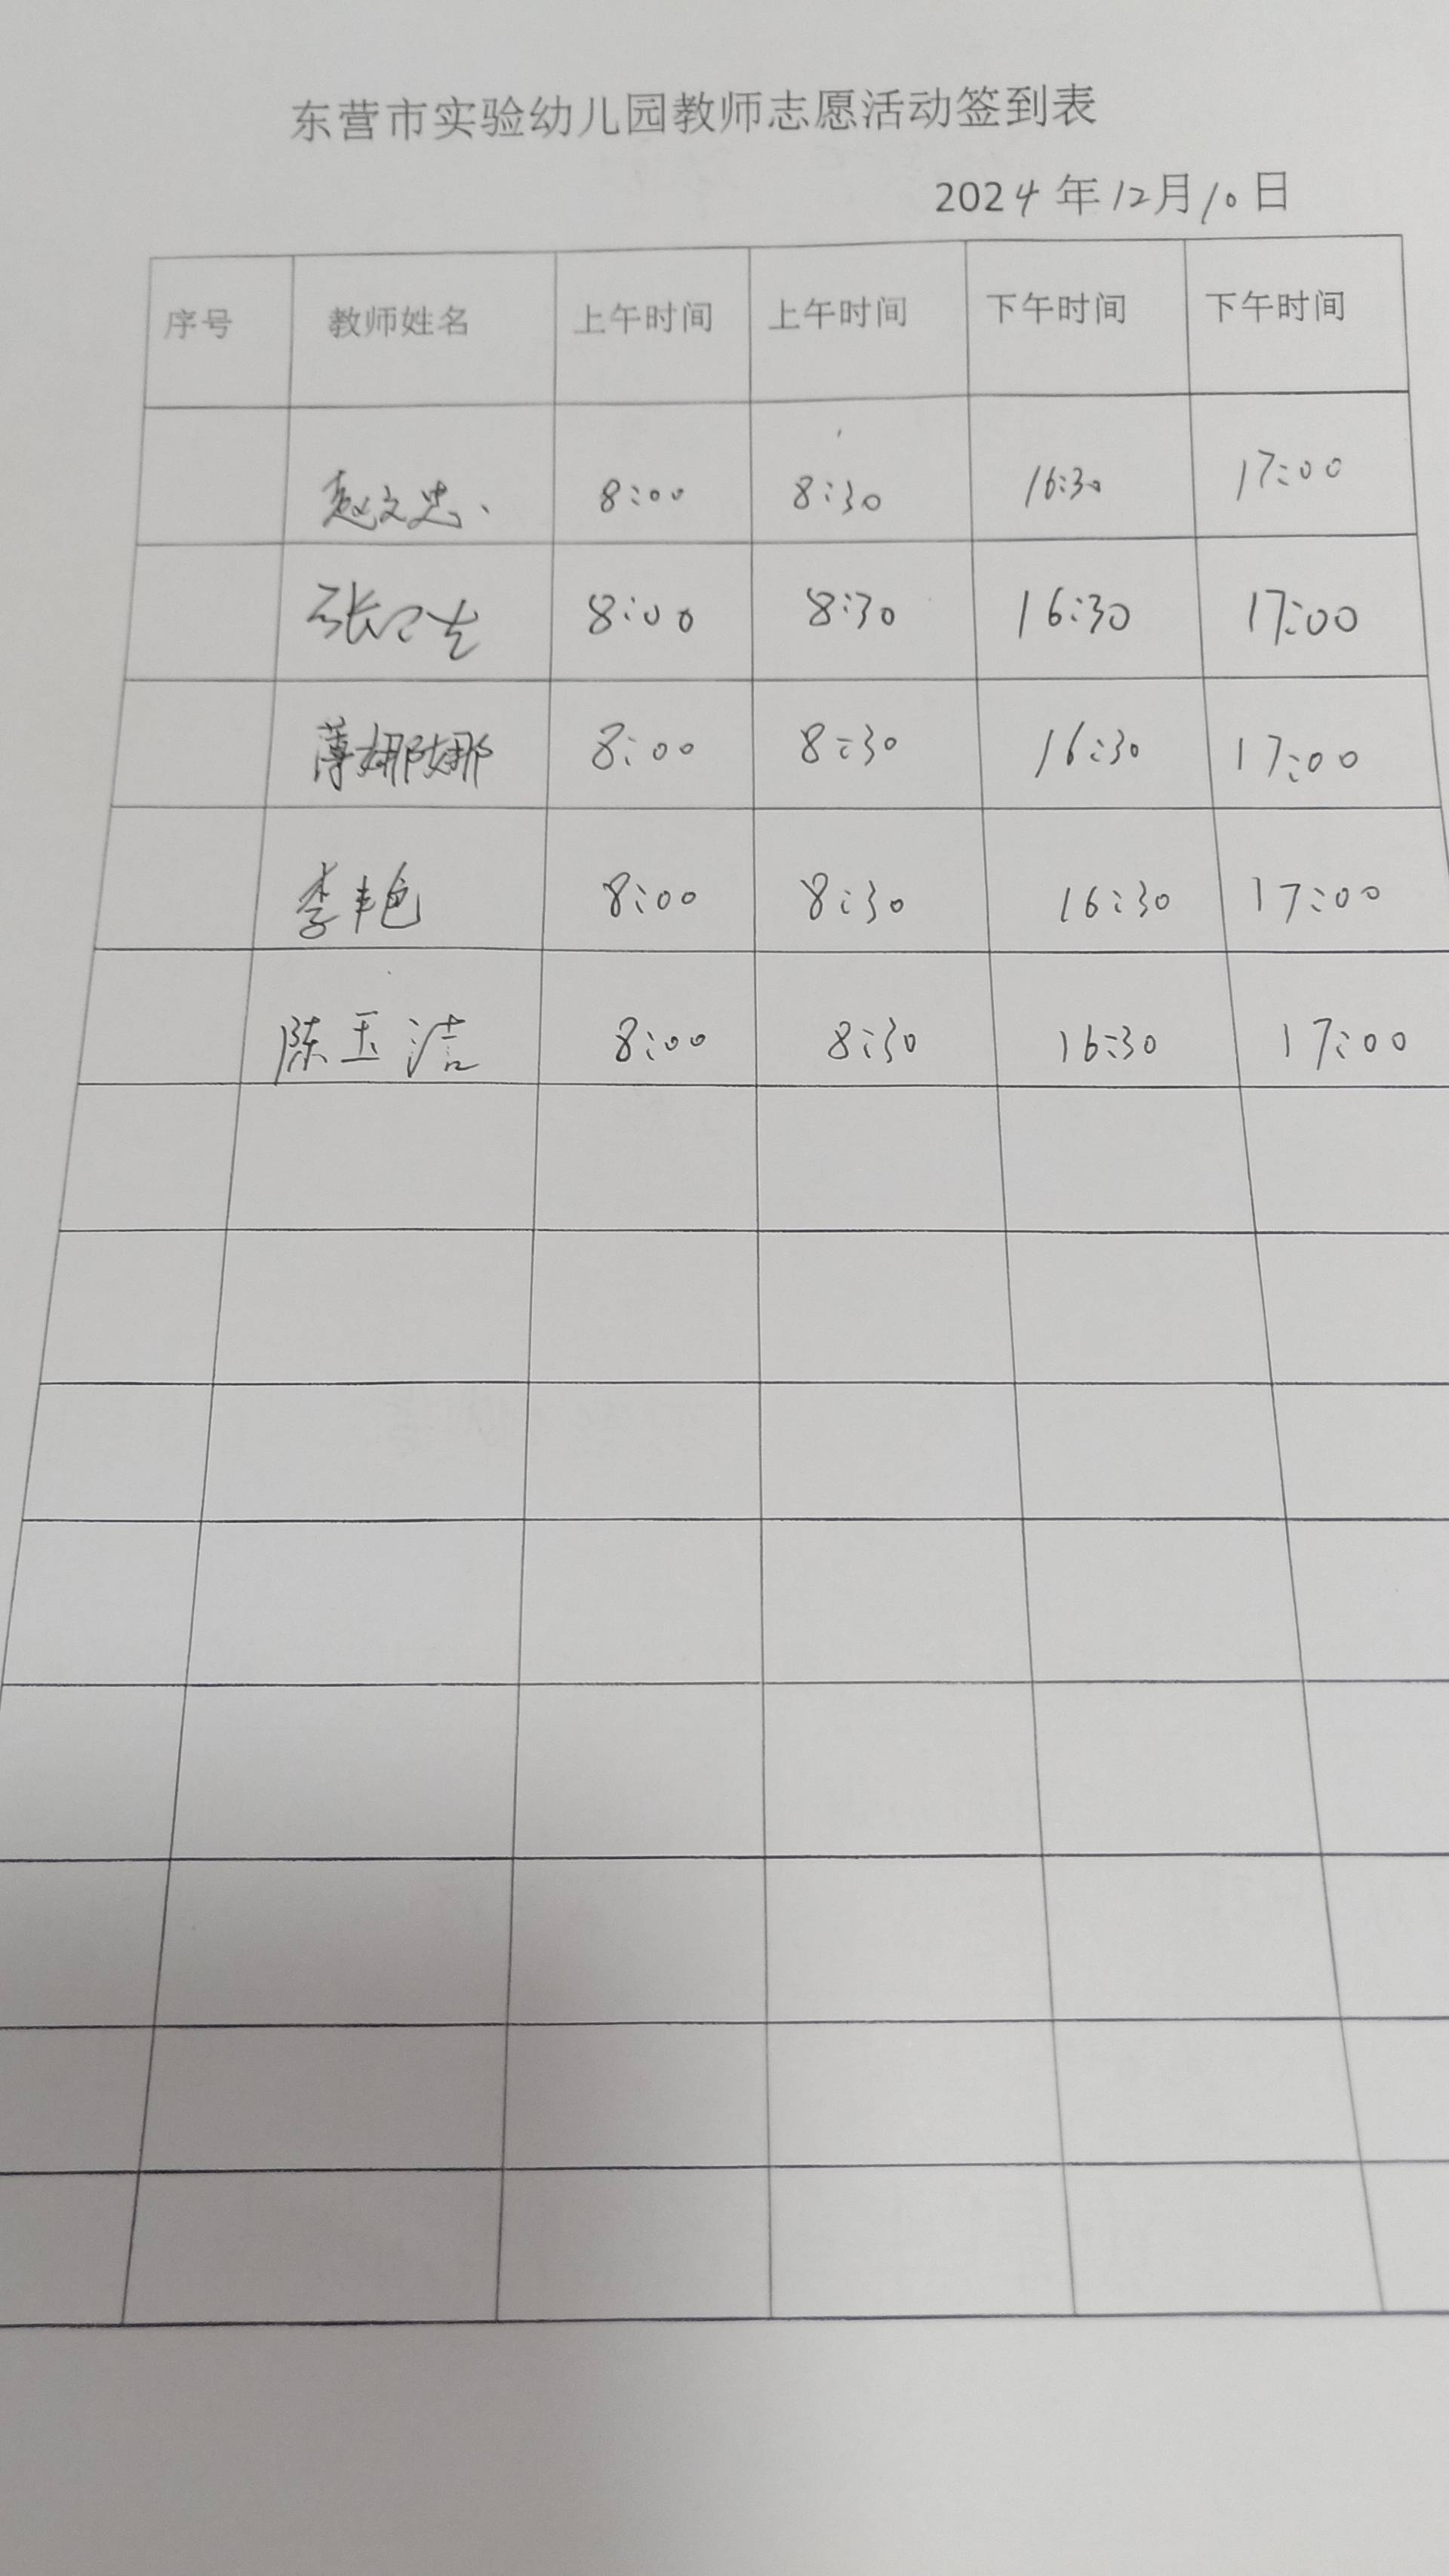 东营市实验幼儿园教师志愿活动签到表
2024年12月10日
序号 教师姓名 上午时间 上午时间 下午时间 下午时间
赵文忠 8:00 8:30 16:30 17:00
张 8:00 8:30 16:30 17:00
薄娜娜 8:00 8:30 16:30 17:00
李艳 8:00 8:30 16:30 17:00
陈玉洁 8:00 8:30 16:30 17:00